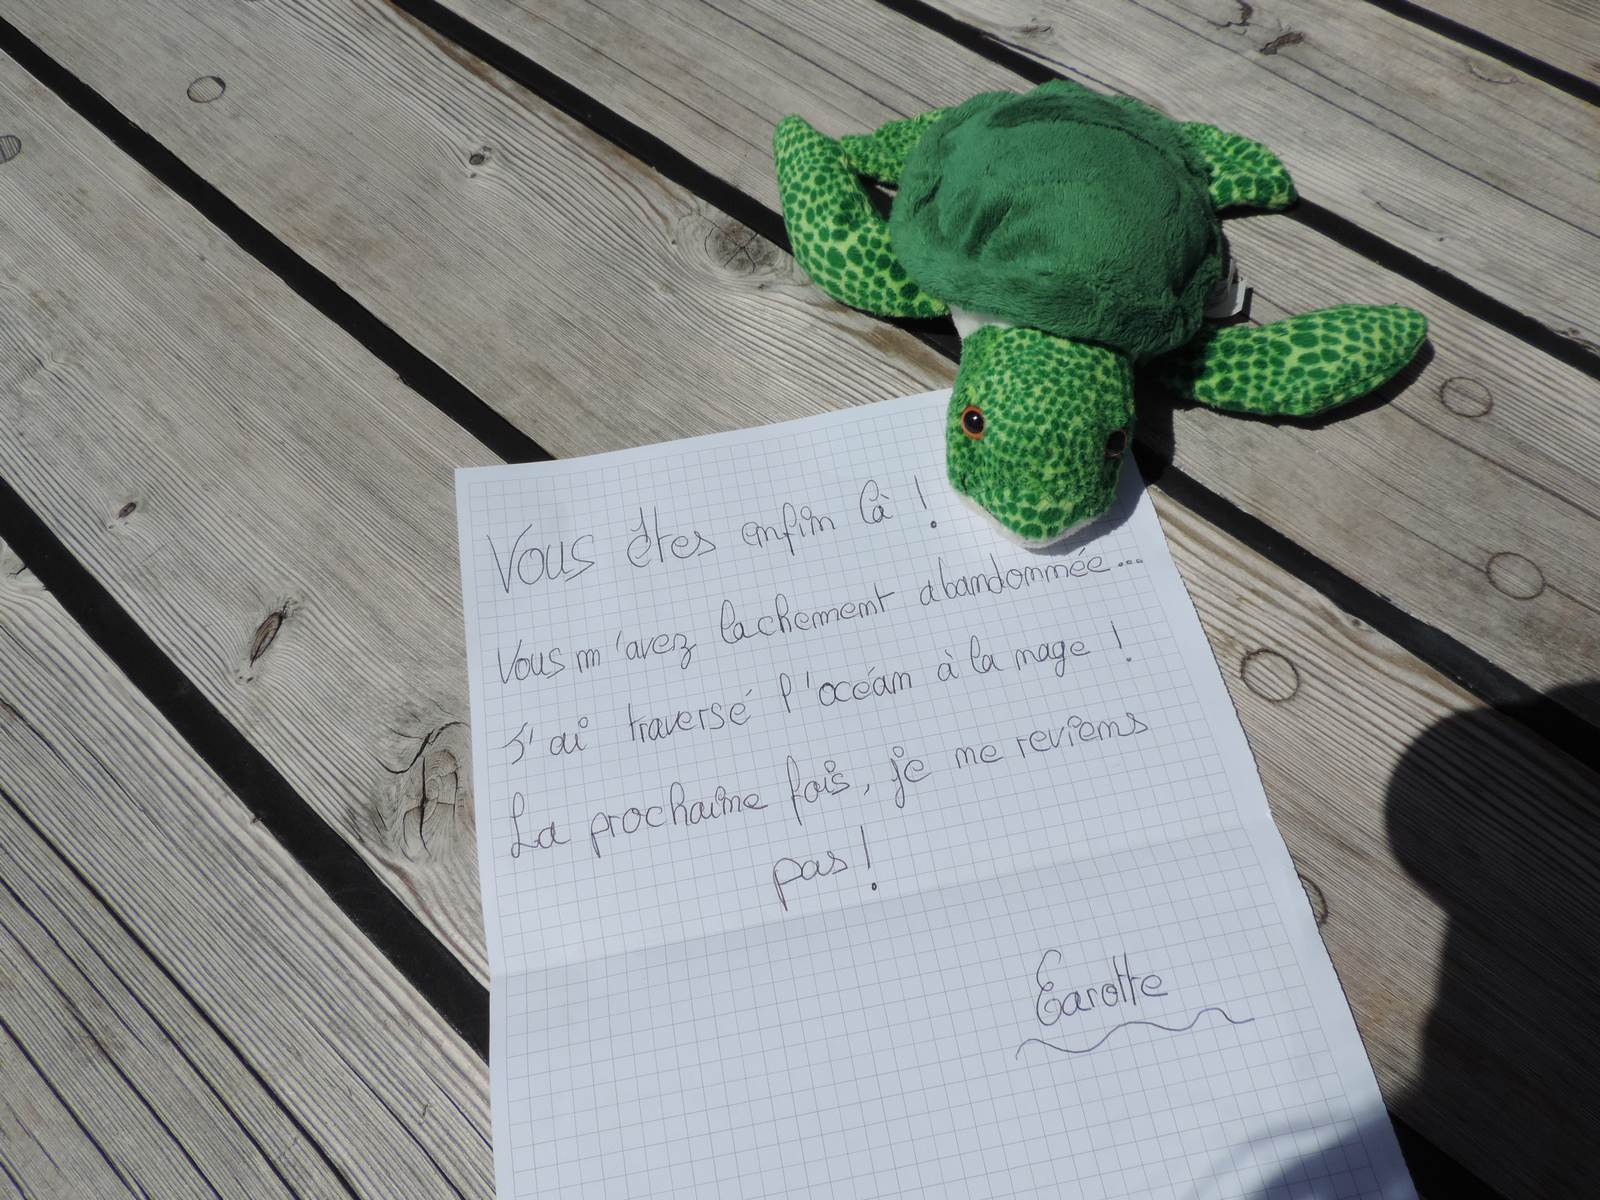 Vous êtes enfin là !
Vous m'avez lachement abandonnée...
J'ai traversé l'océan à la nage !
La prochaine fois, je me reviens
pas !
Carotte